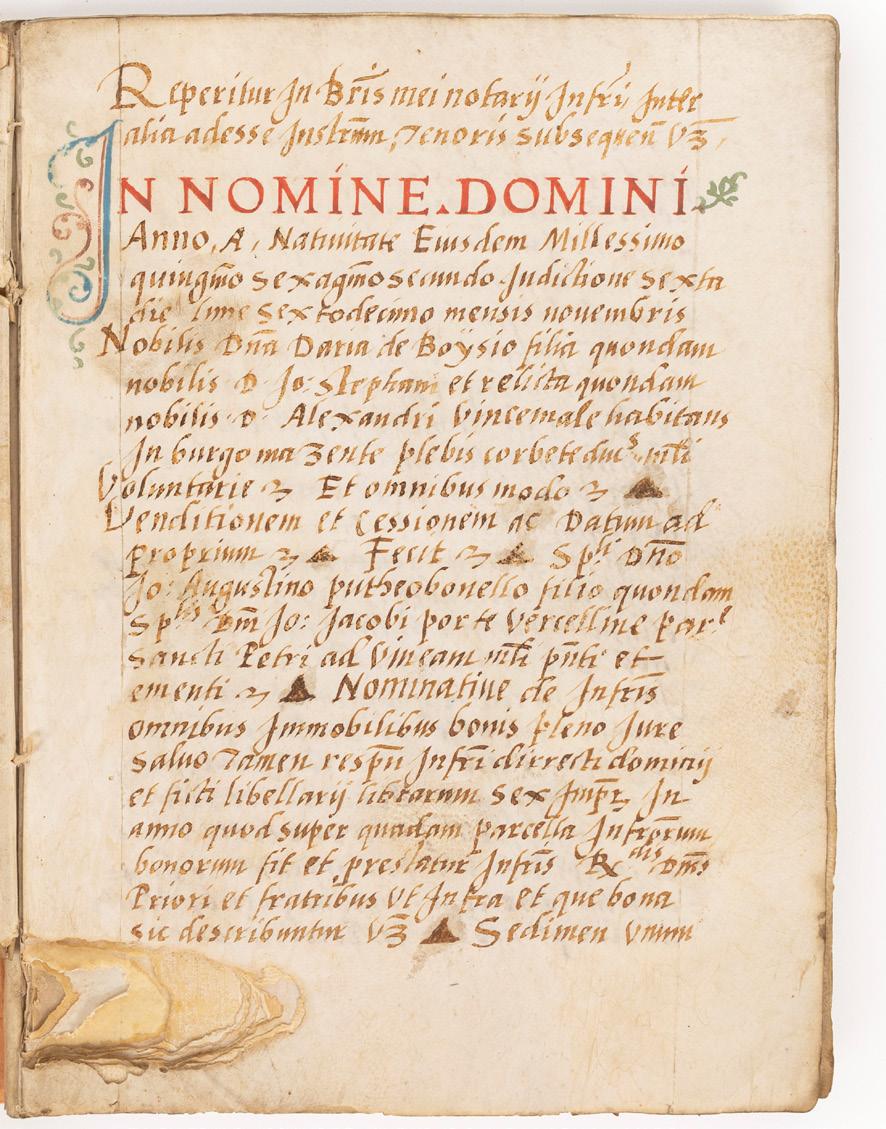 Reperitur In Breis mei notarij Infri Inter
alia adesse Instrm, Tenoris subsequen Vz,
IN NOMINE. DOMINI.
Anno, A, Natiuitate Eiusdem Millessimo
quingmo sexagmo secundo Indictione sexta
die lune sextodecimo mensis nouembris
Nobilis Dna Daria de Boysio filia quondam
nobilis D. Jo: Stephani et relicta quondam
nobilis D. Alexandri Vincemale habitans
In burgo mazente plebis corbete ducs mli
Voluntarie Et omnibus modo
Venditionem et Cessionem ac Datum ad
proprium Fecit Spli Dno
Jo: Augustino putheobonello filio quondam
Splis Dni Jo: Jacobi porte Vercelline par
sancti Petri ad Vineam mli pnti et
ementi Nominatiue de Infris
omnibus Immobilibus bonis pleno Jure
saluo Tamen respu Infri dirrecti dominij
et ficti libellarij librarum sex Impr In
anno quod super quadam parcella Infrorum
bonorum fit et prestatur Infris Rdis Dnis
Priori et fratribus Vt Infra et que bona
sic describuntur Vz Sedimen Vnum